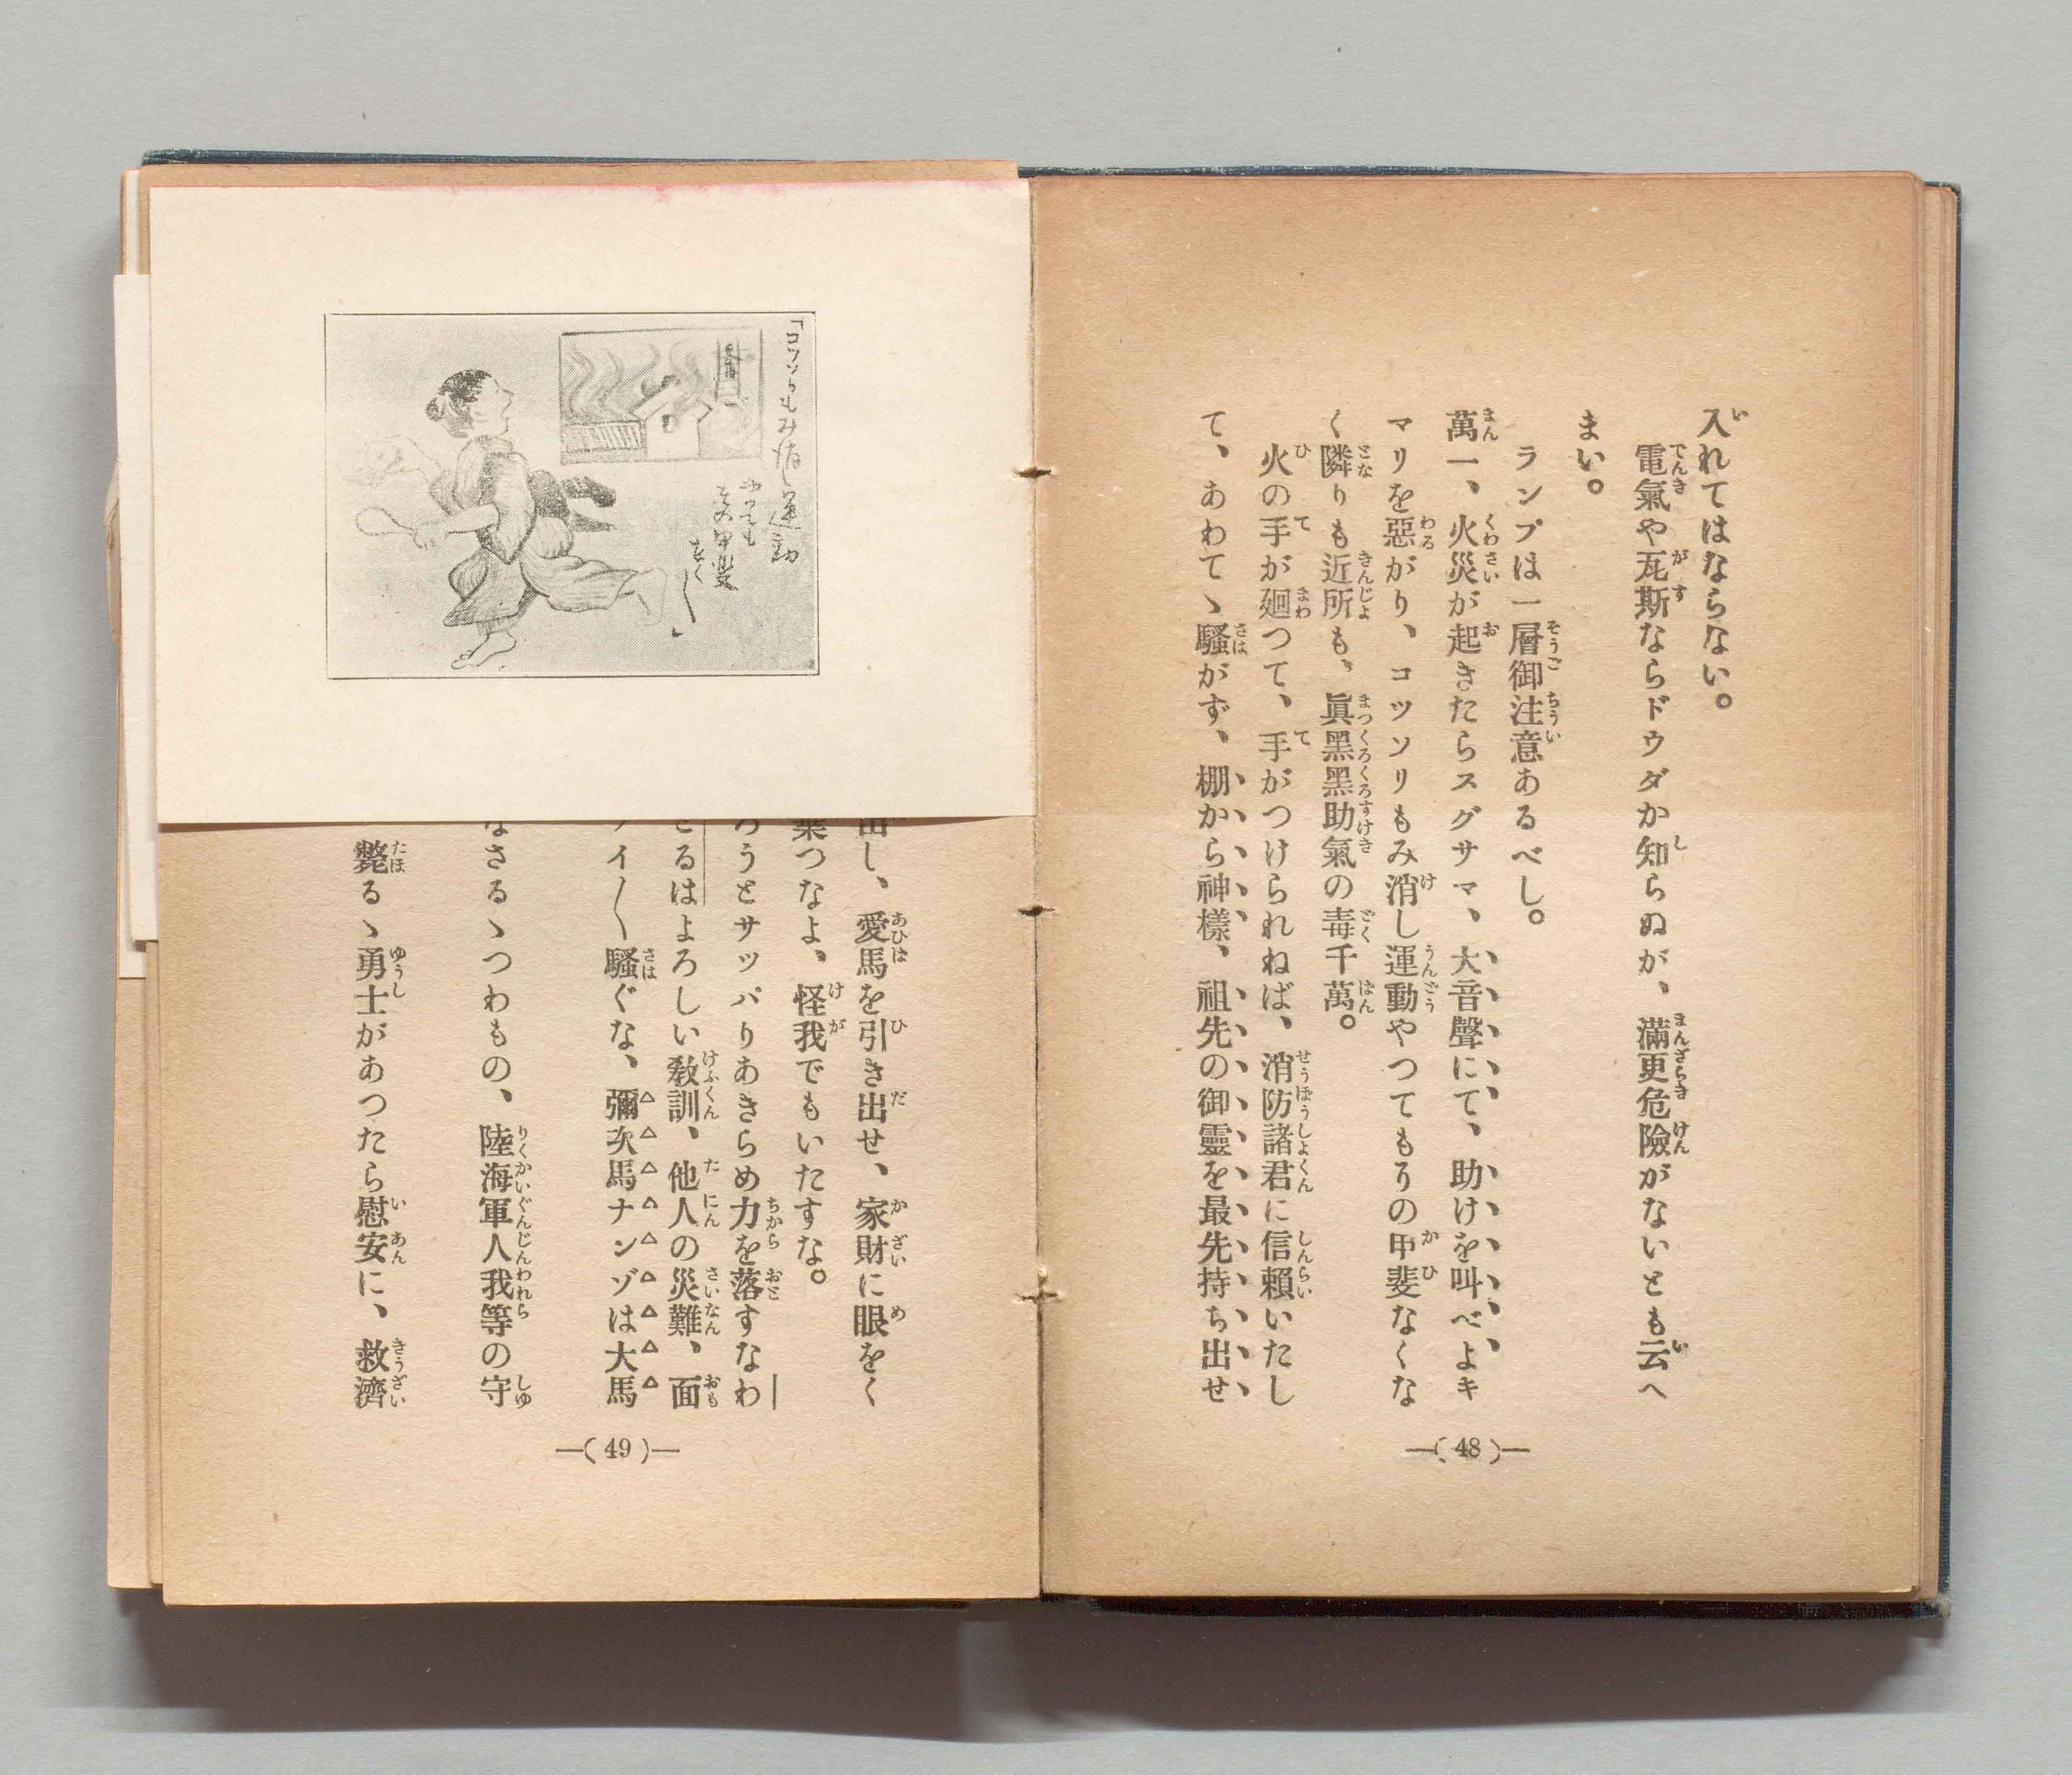 入れてはならない。
電氣や瓦斯ならドウダか知らぬが、滿更危險がないとも云へ
まい。
ランプは一層御注意あるべし。
萬一、火災が起きたらスグサマ、大音聲にて、助けを叫べよキ
マリを惡がり、コツソリもみ消し運動やつてもりの甲斐なくな
く隣りも近所も、眞黑黑助氣の毒千萬。
火の手が廻つて、手がつけられねば、消防諸君に信賴いたし
て、あわてゝ騷がず、棚から神樣、祖先の御靈を最先持ち出せ
―( 48 )―
「コツソリもみ消し運動
やつても
其甲斐
なく〱」
出し、愛馬を引き出せ、家財に眼をく
棄つなよ、怪我でもいたすな。
ろうとサッパりあきらめ力を落すなわ
とるはよろしい敎訓、他人の災難、面
ワイ〱騷ぐな、彌次馬ナンゾは大馬
なさるゝつわもの、陸海軍人我等の守
斃るゝ勇士があつたら慰安に、救濟
―( 49 )―